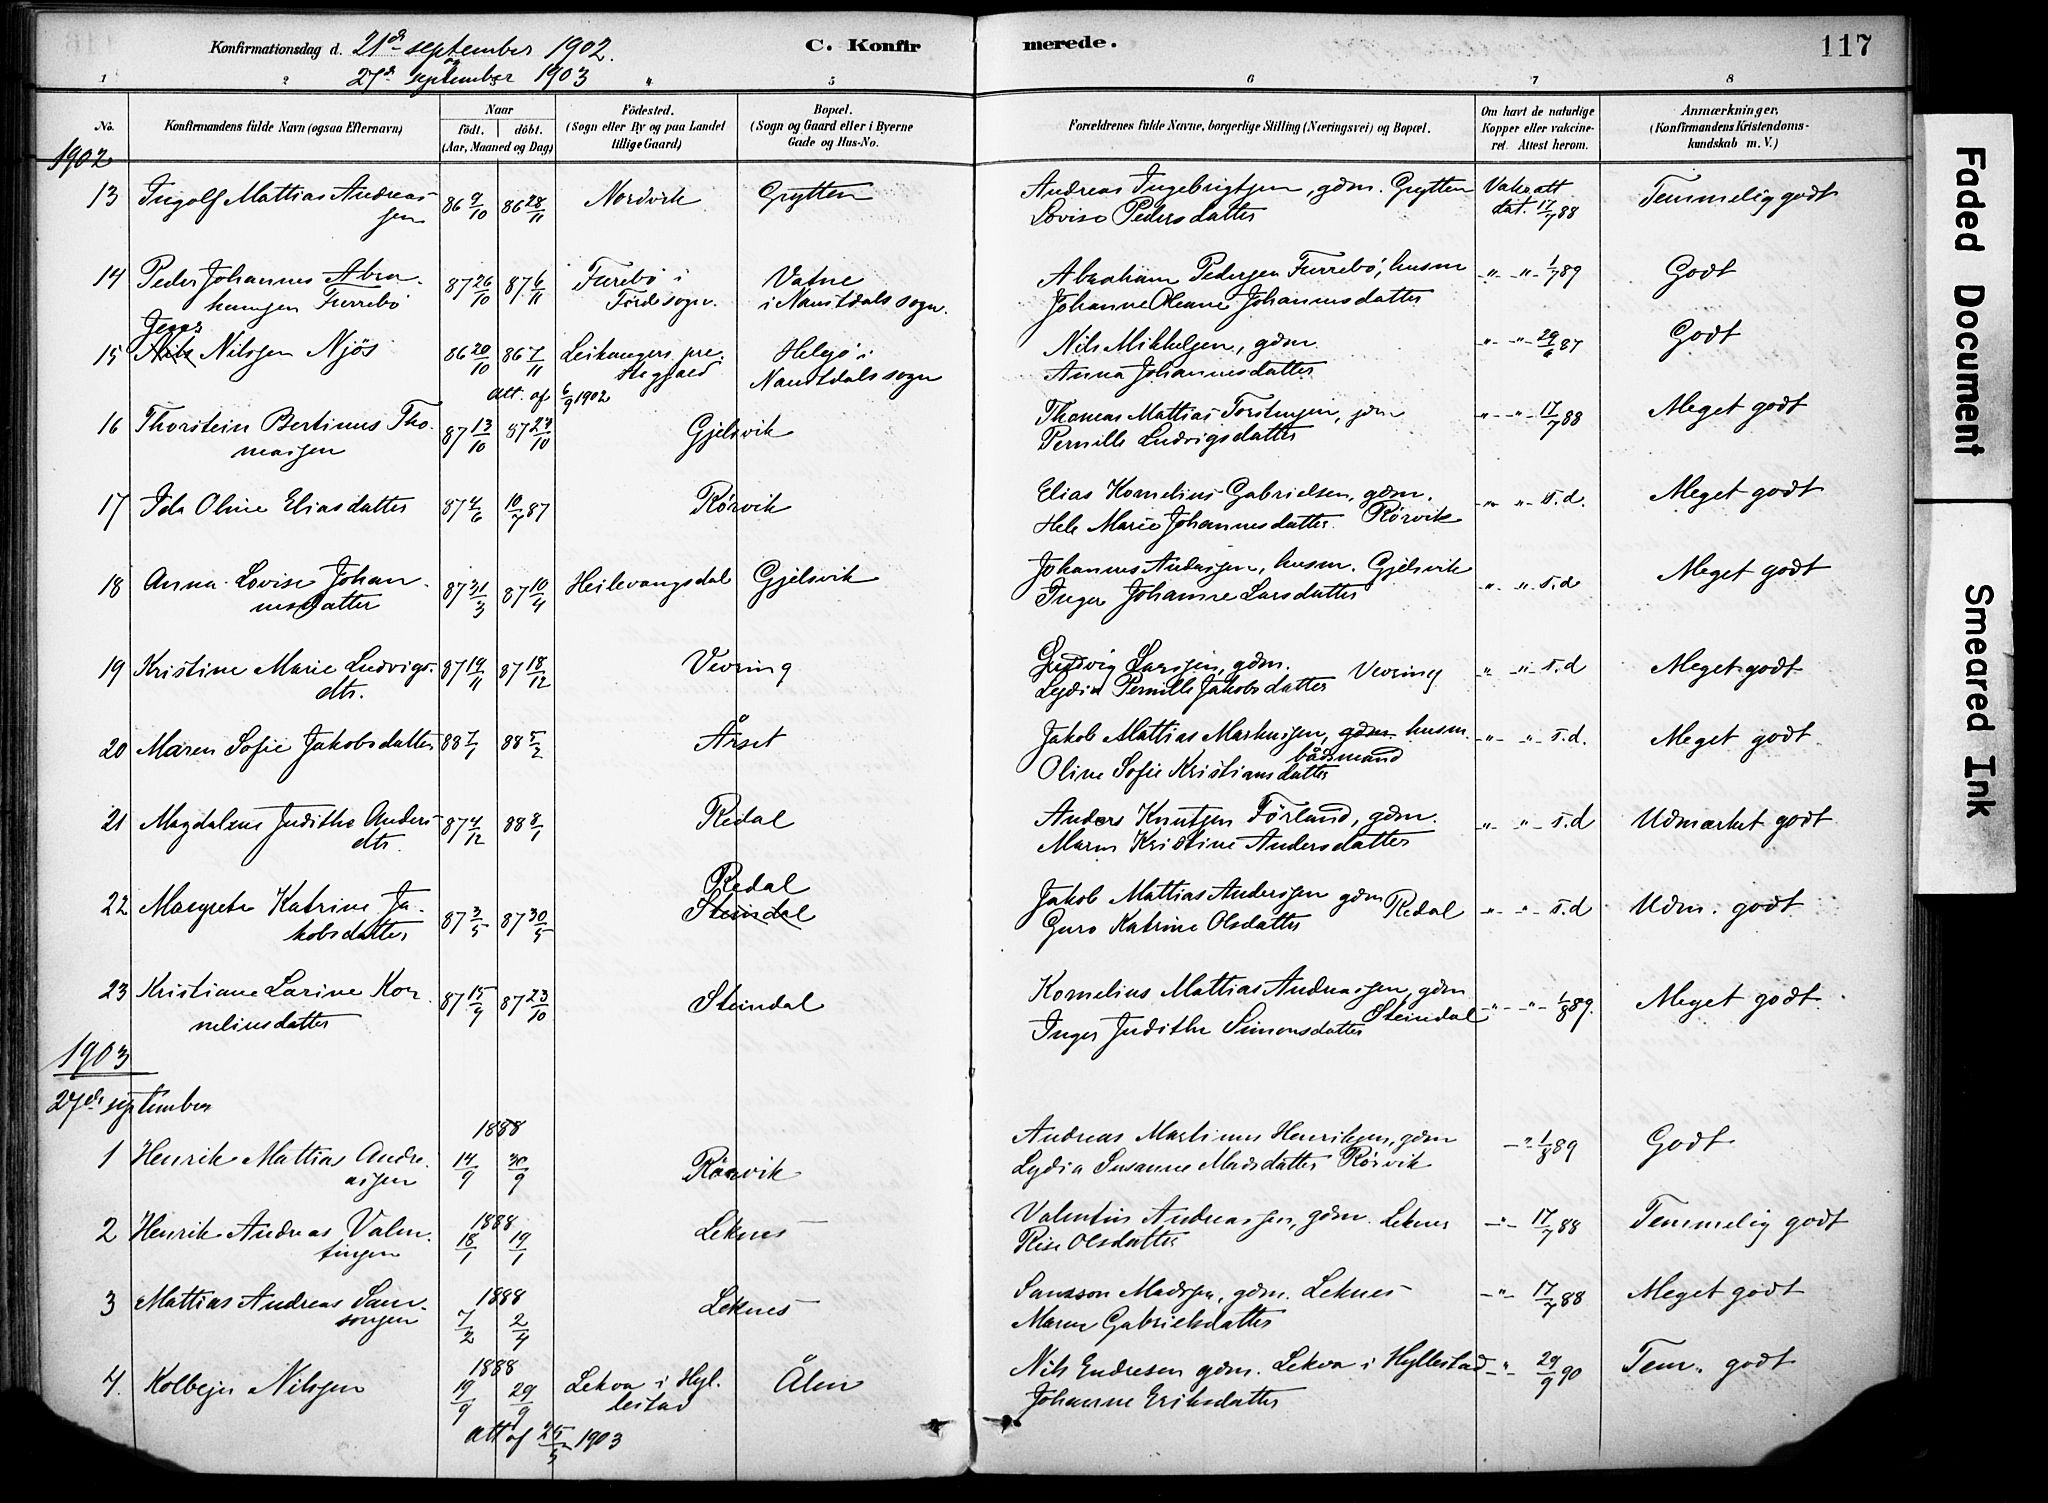 Konfirmationsdag d. 21de september 1902. C. Konfirmerede. 117
og
27de september 1903
1 2 3 4 5 6 7 8
No.
Konfirmandens fulde Navn (ogsaa Efternavn)
Naar
födt. döbt.
(Aar, Maaned og Dag)
Födested.
(Sogn eller By og paa Landet
tillige Gaard)
Bopæl.
(Sogn og Gaard eller i Byerne
Gade og Hus-No.
Forældrenes fulde Navne, borgerlige Stilling (Næringsvei) og Bopæl.
Om havt de naturlige
Kopper eller vakcine-
ret. Attest herom.
Anmærkninger.
(Konfirmandens Kristendoms-
kundskab m. V.)
1902
13 Ingolf Mattias Andreas- 86 9/10 86 28/11 Nordvik Grytten Andreas Ingebrigtsen, gdm. Grytten Vakc. att Temmelig godt
sen Lovise Pedersdatter dat. 17/7 88
14 Peder Johannes Abra- 87 26/10 87 6/11 Furebö i Vatne Abraham Pedersen Furrebö, husm „ „ 1/7 89 Godt
hamsen Furrebö Förde sogn. i Naustdals sogn. Johanne Oleane Johannesdatter
Jegar
15 Nils Nilssen Njös 86 20/10 86 7/11 Leikanger pre- Helsjö i Nils Mikkelsen, gdm. „ „ 29/6 87 Godt
stegjeld Naustdals sogn Anna Johannesdatter
Att. af 6/9 1902
16 Thorstein Bertinus Tho- 87 13/10 87 27/10 Gjelsvik Thomas Mattias Torstensen, gdm „ „ 17/7 88 Meget godt
massen Pernille Ludvigsdatter
17 Ida Oline Eliasdatter 87 4/6 10/7 87 Rörvik Elias Kornelius Gabrielsen, gdm. „ „ s.d. Meget godt
Hele Marie Johannesdatter. Rörvik
18 Anna Lovise Johan- 87 31/3 87 10/4 Heilevangsdal Gjelsvik Johannes Andersen, husm. Gjelsvik „ „ s.d Meget godt
nesdatter Inger Johanne Larsdatter
19 Kristine Marie Ludvigs- 87 19/11 87 18/12 Vevring Ludvig Larssen, gdm. Vevring „ „ s.d Meget godt
dtr. Lydia Pernille Jakobsdatter
20 Maren Sofie Jakobsdatter 88 7/1 88 5/2 Årset Jakob Mattias Markussen, gdm husm. „ „ s.d. Meget godt
bådsmand
Oline Sofie Kristiansdatter
21 Magdalene Judithe Anders- 87 4/12 88 8/1 Redal Anders Knutsen Förland, gdm. „ „ s.d Udmærket godt
dtr. Maren Kristine Andersdatter
Redal
22 Margrete Katrine Ja- 87 3/5 87 30/5 Steindal Jakob Mattias Anderssen gdm Redal „ „ s.d Udm. godt
kobsdatter Guro Katrine Olsdatter
23 Kristiane Larine Kor- 87 15/9 87 23/10 Steindal Kornelius Mattias Andreassen, gdm „ „ 1/8 89. Meget godt
neliusdatter Inger Judithe Simonsdatter Steindal
1903
27de september
1888
1 Henrik Mattias Andre- 14/9 30/9 Rörvik Andreas Martinus Henriksen, gdm „ 1/8 89 Godt
assen Lydia Susanne Madsdatter Rörvik
1888
2 Henrik Andreas Valen- 18/1 19/1 Leknes Valentin Andreassen, gdm. Leknes „ 17/7 88 Temmelig godt
tinsen Rise Olsdatter
1888
3 Mattias Andreas Sam- 7/2 2/4 Leknes Samsson Madssen, gdm. Leknes „ 17/7 88 Meget godt
sonsen Maren Gabrielsdatter
1888
4. Kolbejn Nilssen 19/9 29/9 Lekva i Hyl- Ålen Nils Endresen gdm. Lekva i Hyllestad „ 29/9 90 Tem. godt
lestad Johanne Eriksdatter
Att af 25/5 1903
Faded Document
Smeared Ink